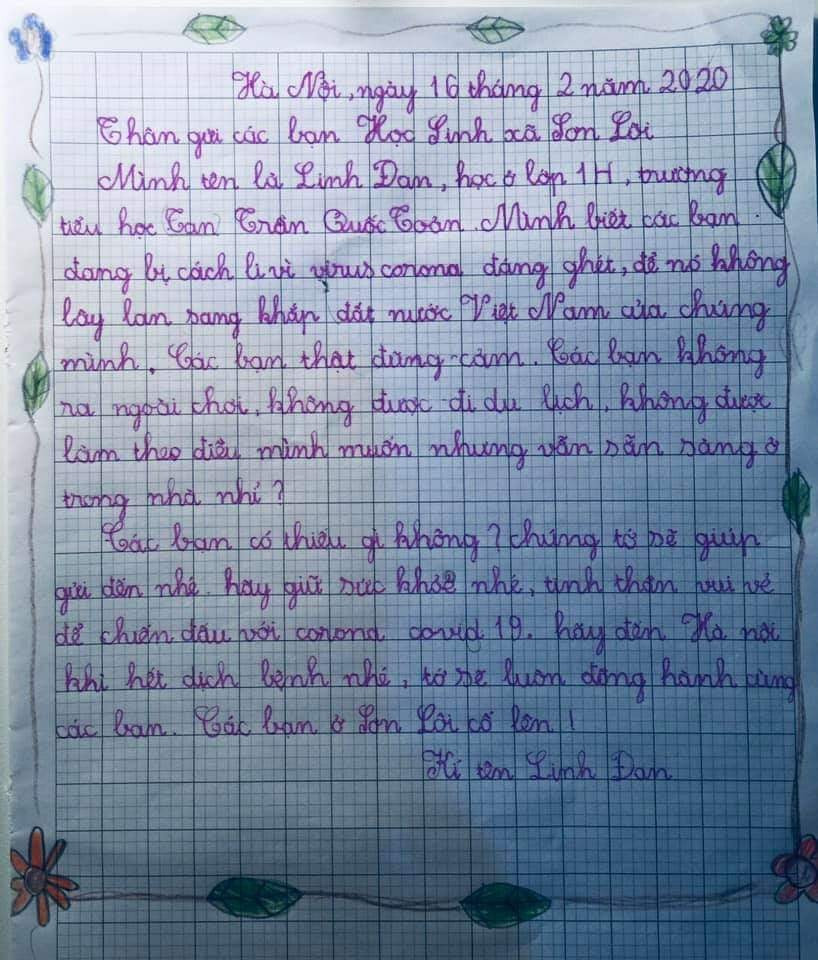 Hà Nội, ngày 16 tháng 2 năm 2020
Thân gửi các bạn Học Sinh xã Sơn Lôi
Mình tên là Linh Đan, học ở lớp 1H, trường
tiểu học Ban Trần Quốc Toản. Mình biết các bạn
đang bị cách li vì virus corona đáng ghét, để nó không
lây lan sang khắp đất nước Việt Nam của chúng
mình. Các bạn thật dũng cảm. Các bạn không
ra ngoài chơi, không được đi du lịch, không được
làm theo điều mình muốn nhưng vẫn sẵn sàng ở
trong nhà nhỉ?
Các bạn có thiếu gì không? chúng tớ sẽ giúp
gửi đến nhé. hãy giữ sức khỏe nhé, tinh thần vui vẻ
để chiến đấu với corona covid 19. hãy đến Hà nội
khi hết dịch bệnh nhé, tớ sẽ luôn đồng hành cùng
các bạn. Các bạn ở Sơn Lôi cố lên!
Kí tên Linh Đan